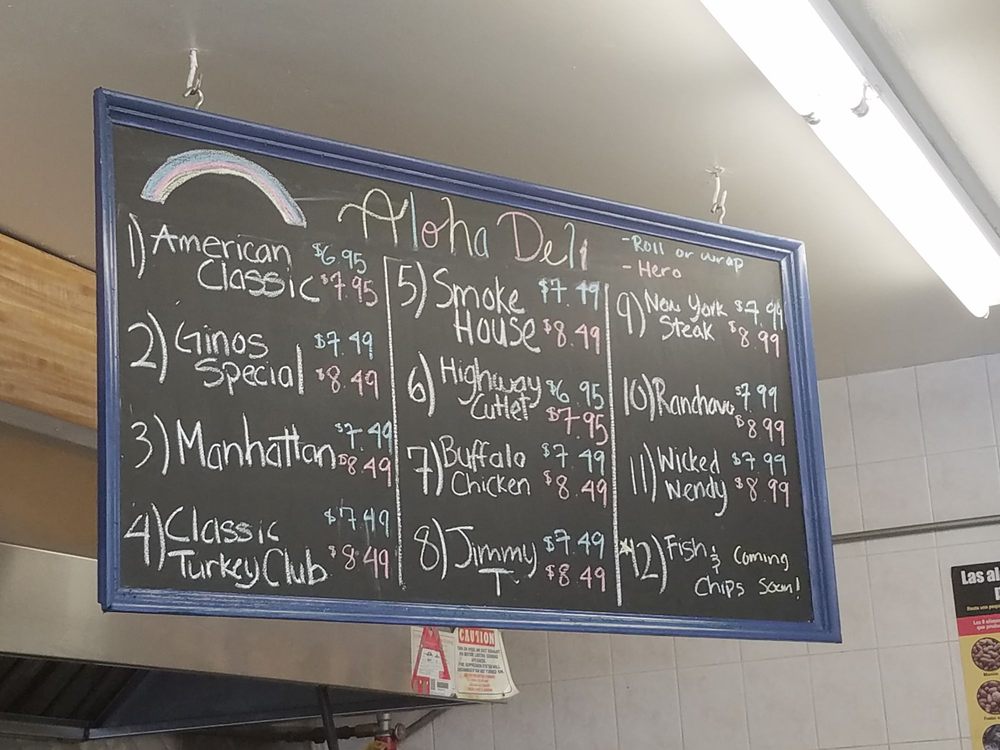 Aloha Deli
- Roll or wrap
- Hero
1) American $6.95
Classic $7.95
2) Ginos $7.49
Special $8.49
3) Manhattan $7.49
$8.49
4) Classic $7.49
Turkey Club $8.49
5) Smoke $7.49
House $8.49
6) Highway $6.95
Cutlet $7.95
7) Buffalo $7.49
Chicken $8.49
8) Jimmy $7.49
T. $8.49
9) New York $7.99
Steak $8.99
10) $7.99
$8.99
11) Wicked $7.99
Wendy $8.99
12) Fish & Coming
Chips Soon!
CAUTION
Las